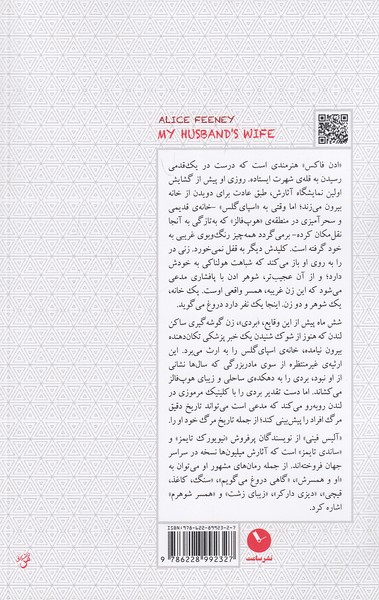 ALICE FEENEY
MY HUSBAND'S WIFE
«ادن فاکس» هنرمندی است که درست در یک‌قدمی
رسیدن به قله‌ی شهرت ایستاده. روزی او پیش از گشایش
اولین نمایشگاه آثارش، طبق عادت برای دویدن از خانه
بیرون می‌زند؛ اما وقتی به «اسپای‌گلس» -خانه‌ی قدیمی
و سحرآمیزی در منطقه‌ی «هوپ‌فالز» که به‌تازگی به آنجا
نقل‌مکان کرده- برمی‌گردد همه‌چیز رنگ‌وبوی غریبی به
خود گرفته است. کلیدش دیگر به قفل نمی‌خورد. زنی در
را به روی او باز می‌کند که شباهت هولناکی به خودش
دارد؛ و از آن عجیب‌تر، شوهر ادن با پافشاری مدعی
می‌شود که این زن غریبه، همسر واقعی اوست. یک خانه،
یک شوهر و دو زن. اینجا یک نفر دارد دروغ می‌گوید.
شش ماه پیش از این وقایع، «بردی»، زن گوشه‌گیری ساکن
لندن که هنوز از شوک شنیدن یک خبر پزشکی تکان‌دهنده
بیرون نیامده، خانه‌ی اسپای‌گلس را به ارث می‌برد. این
ارثیه‌ی غیرمنتظره از سوی مادربزرگی که سال‌ها نشانی
از او نبود، بردی را به دهکده‌ی ساحلی و زیبای هوپ‌فالز
می‌کشاند. اما دست تقدیر بردی را با کلینیک مرموزی در
لندن روبه‌رو می‌کند که مدعی است می‌تواند تاریخ دقیق
مرگ افراد را پیش‌بینی کند؛ از جمله تاریخ مرگ خود او را.
«آلیس فینی» از نویسندگان پرفروش «نیویورک تایمز» و
«ساندی تایمز» است که آثارش میلیون‌ها نسخه در سراسر
جهان فروخته‌اند. از جمله رمان‌های مشهور او می‌توان به
«او و همسرش»، «گاهی دروغ می‌گویم»، «سنگ، کاغذ،
قیچی»، «دیزی دارکر»، «زیبای زشت» و «همسر شوهرم»
اشاره کرد.
ISBN: 978-622-89923-2-7
9 786228 992327
نشر سامت